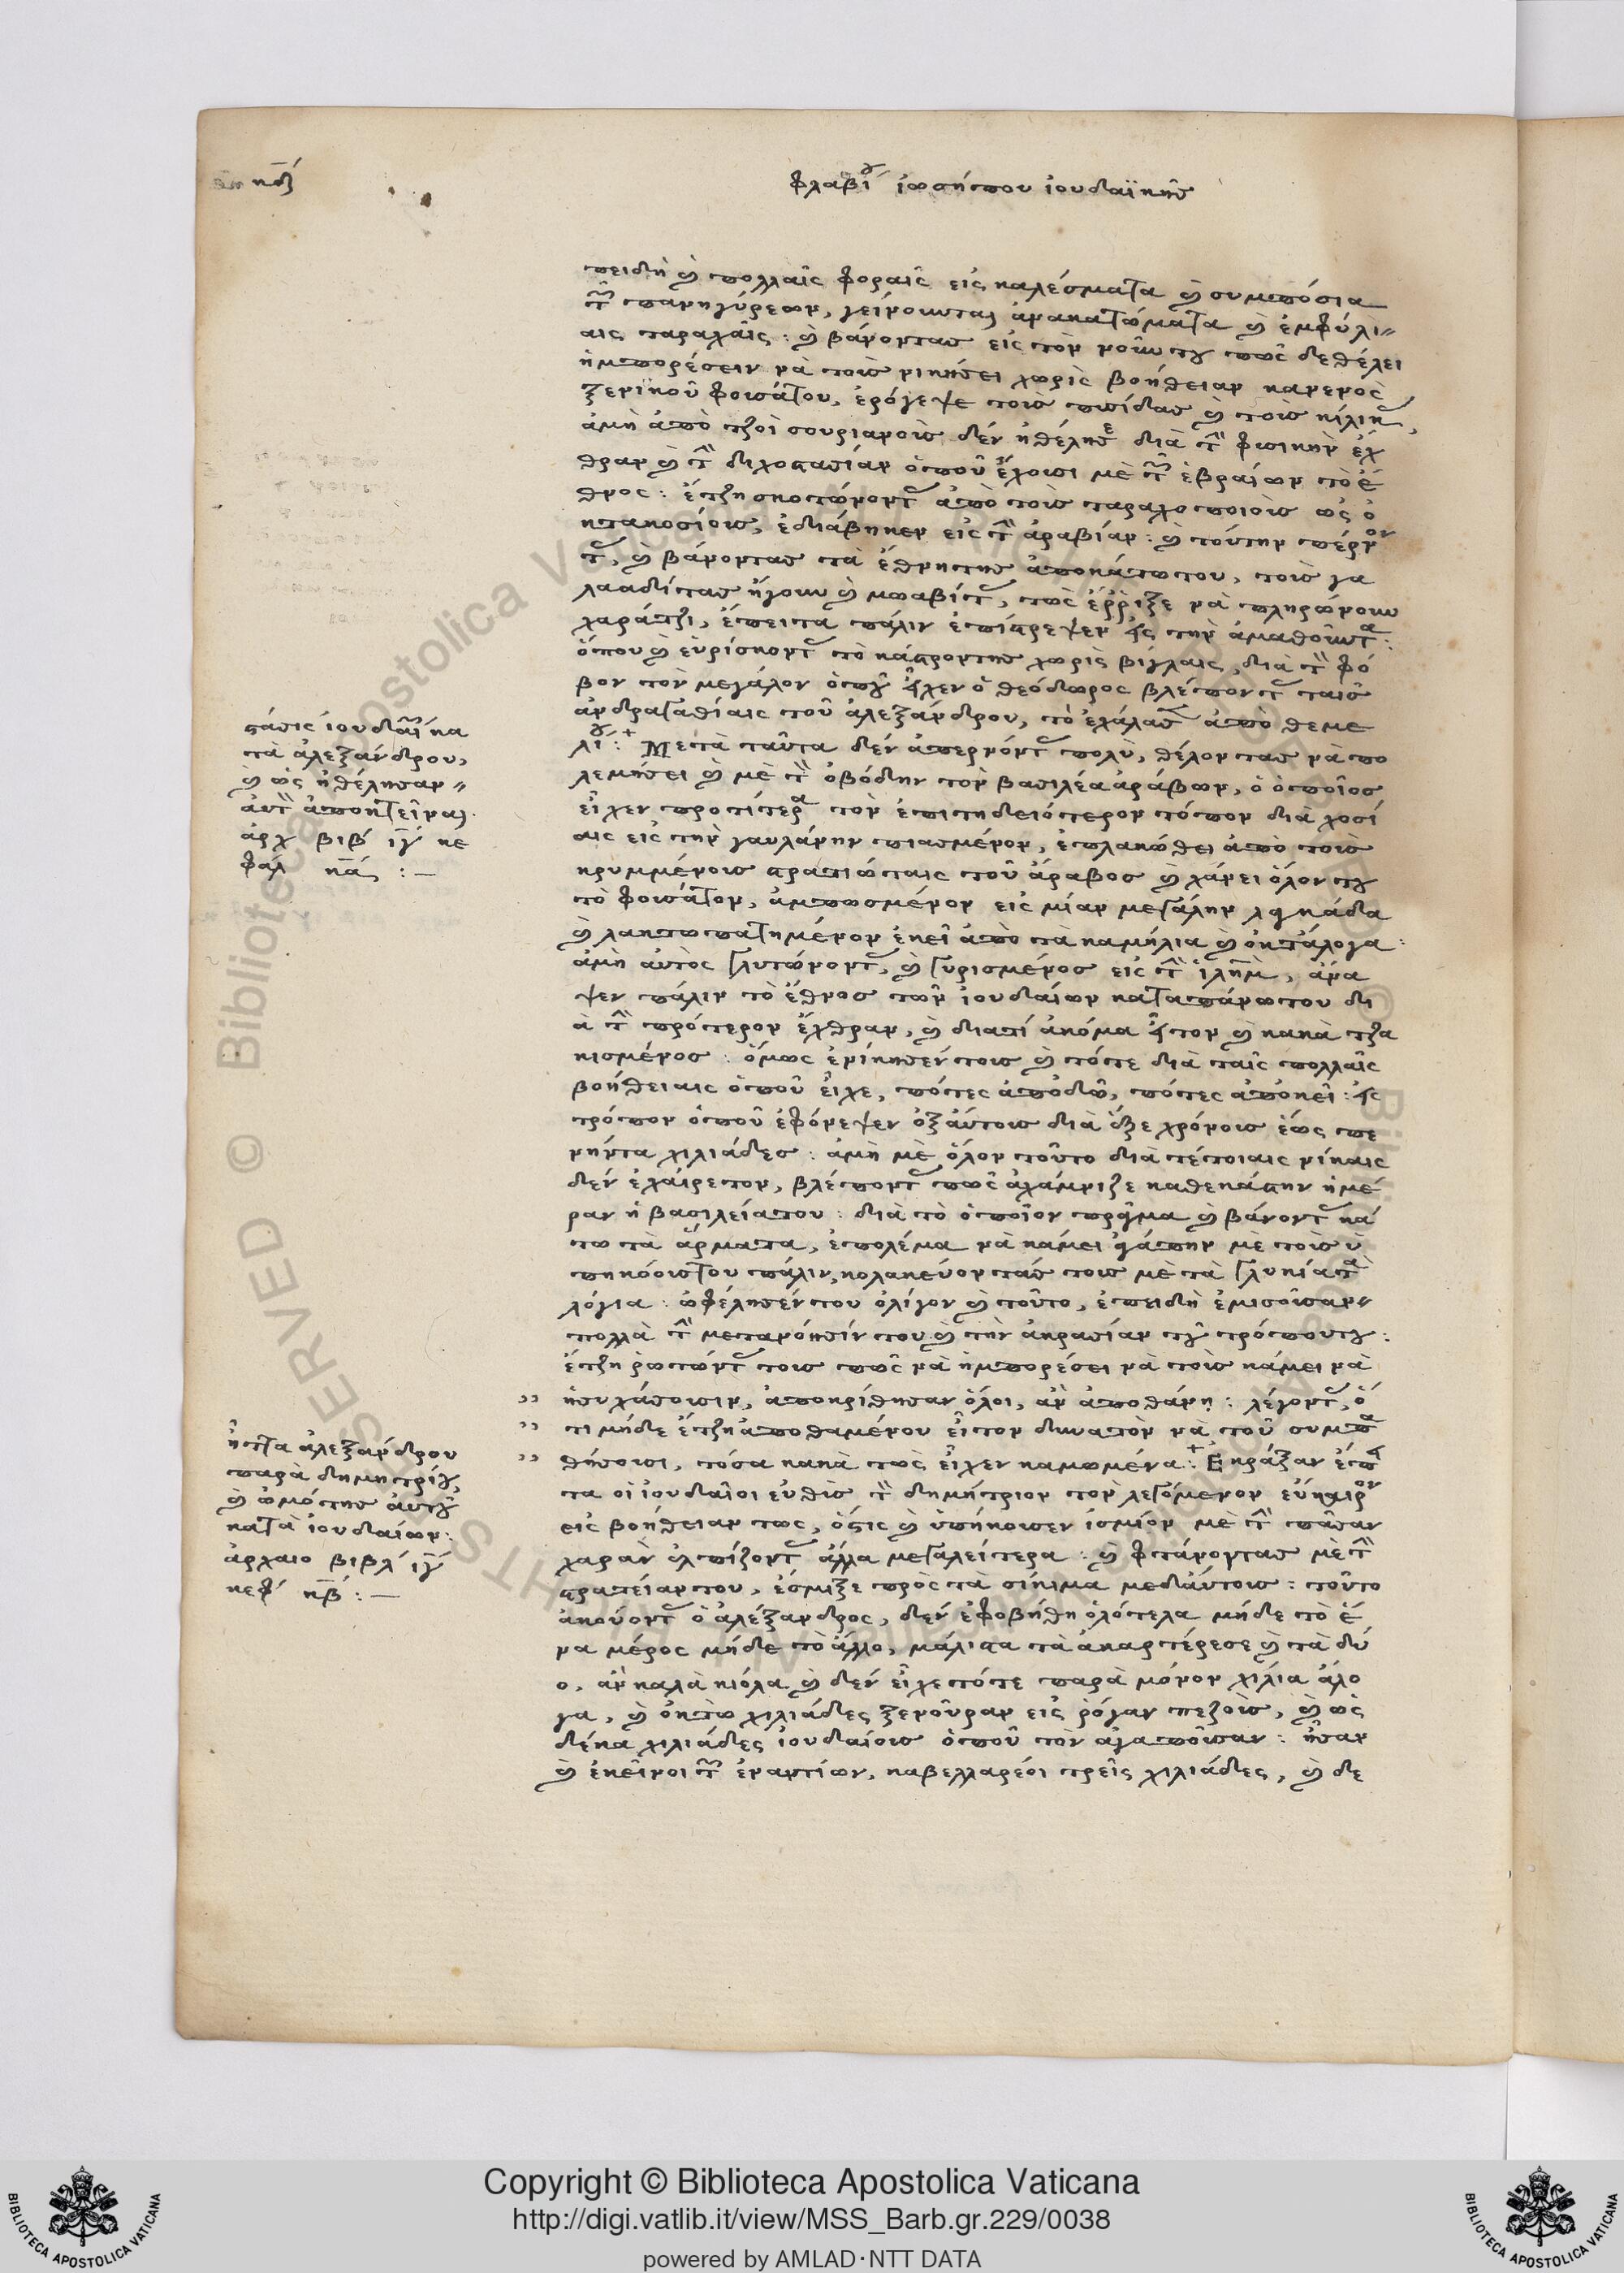 φλαβίου ἰωσήπου ἰουδαϊκῆς
πειδὴ καὶ πολλαῖς φοραῖς εἰς καλέσματα καὶ συμπόσια
τῶν πανηγύρεων, γείνουνται ἀνακατώματα καὶ ἐμφύλι
αις ταραχαῖς: καὶ βάνοντας εἰς τὸν νοῦν του πῶς δεθέλει
ἡμπορέσειν νὰ τοὺς νικήσει χωρὶς βοήθειαν κανενὸς
ξενικοῦ φουσάτου, ἐρόγεψε τοὺς πισίδας καὶ τοὺς κίλικας,
ἀμὴ ἀπὸ τζοὶ σουριανοὺς δὲν ἠθέλησε διὰ τὴν φυσικὴν ἐχ
θραν καὶ τὴν διχοστασίαν ὁποῦ ἔχουσι μὲ τῶν ἑβραίων τὸ ἔ
θνος: ἔτζη σκοτώνοντας ἀπὸ τοὺς ταραχοποιοὺς ὡς ὀ
κτακοσίους, ἐδιάβηκεν εἰς τὴν ἀραβίαν: καὶ τούτην πέρνον
τας, καὶ βάνοντας τὰ ἔθνητης ἀποκάτωτου, τοὺς γα
λααδίτας ἤγουν καὶ μωαβίτας, τὼς ἐῤῥιξε νὰ πληρώνουν
χαράτζι, ἔπειτα πάλιν ἐπίστρεψεν εἰς τὴν ἀμαθοῦντα:
ὅπου καὶ εὑρίσκοντας τὸ κάστροντης χωρὶς βίγλαις, διὰ τὸν φό
βον τὸν μεγάλον ὁποῦ εἶχεν ὁ θεόδωρος βλέποντας ταῖς
ἀνδραγαθίαις τοῦ ἀλεξάνδρου, τὸ ἐχάλασε ἀπὸ θεμε
λίου: Μετὰ ταῦτα δὲν ἀπερνόντας πολὺ, θέλοντας νὰ πο
λεμήσει καὶ μὲ τὸν ὀβόδην τὸν βασιλέα ἀράβων, ὁ ὁποῖος
εἶχεν προτίτερα τὸν ἐπιτηδειότερον τόπον διὰ χοσί
αις εἰς τὴν γαυλάνην πιασμένον, ἐπλακώθει ἀπὸ τοὺς
κρυμμένους στρατιώταις τοῦ ἄραβος καὶ χάνει ὅλον του
τὸ φουσάτον, ἀμπωσμένον εἰς μίαν μεγάλην
καὶ λακτωπατημένον ἐκεῖ ἀπὸ τὰ καμήλια καὶ ἀπτάλογα:
ἀμὴ αὐτὸς γλυτώνοντας, καὶ γυρισμένος εἰς τὴν ἱλῆμ, ἄνα
ψεν πάλιν τὸ ἔθνος τῶν ἰουδαίων καταπάνωτου δι
ὰ τὴν πρότερον ἔχθραν, καὶ διατί ἀκόμα ἦτον καὶ κακὰ τζα
κισμένος: ὅμως ἐνίκησέν τους καὶ τότε διὰ ταῖς πολλαῖς
βοήθειαις ὁποῦ εἶχε, πότες ἀποδῶ, πότες ἀποκεῖ: εἰς
τρόπον ὁποῦ ἐφόνεψεν ὀξαύτους διὰ ὄξε χρόνους ἕως πε
νήντα χιλιάδες: ἀμὴ μὲ ὅλον τοῦτο διὰ τέτοιαις νίκαις
δὲν ἐχάιρετον, βλέποντας πῶς ἀχάμνιζε καθεκάστην ἡμέ
ραν ἡ βασιλείατου: διὰ τὸ ὁποῖον πρᾶγμα καὶ βάνοντας κά
τω τὰ ἄρματα, ἐπολέμα νὰ κάμει ἀγάπην μὲ τοὺς ὑ
πηκόουςτου πάλιν, κολακεύοντάς τους μὲ τὰ γλυκίατα
λόγια: ὠφέλησέν του ὀλίγον καὶ τοῦτο, ἐπειδὴ ἐμισοῦσαν
πολλὰ τὴν μετανόησίν του καὶ τὴν ἀκρασίαν τοῦ τρόπουτου:
ἔτζη ῥωτώντας τους πῶς νὰ ἡμπορέσει νὰ τοὺς κάμει νὰ
ἡσυχάσουσιν, ἀποκρίθησαν ὅλοι, ἂν ἀποθάνῃ: λέγοντας, ὅ
τι μήδε ἔτζη ἀποθαμένου εἶτον δυνατὸν νὰ τοῦ συμπα
θήσουσι, τόσα κακὰ τὼς εἶχεν καμωμένα: Ἐκράξαν ἔπει
τα οἱ ἰουδαῖοι εὐθὺς τὸν δημήτριον τὸν λεγόμενον εὔκαιρον
εἰς βοήθειαν τως, ὅςις καὶ ὑπήκουσεν ἰσμιὸν μὲ τὴν πᾶσαν
χαρὰν ἐλπίζοντας ἄλλα μεγαλείτερα: καὶ φτάνοντας μὲ τὴν
στρατείαντου, ἔσμιξε πρὸς τὰ σίκιμα μεδαύτους: τοῦτο
ἀκούοντας ὁ ἀλέξανδρος, δὲν ἐφοβήθη ὁλότελα μήδε τὸ ἕ
να μέρος μήδε τὸ ἄλλο, μάλιστα τὰ ἀκαρτέρεσε καὶ τὰ δύ
ο, ἂν καλὰ κιόλα καὶ δὲν εἶχε τότε παρὰ μόνον χίλια ἄλο
γα, καὶ ὀκτὼ χιλιάδες ξενοῦραν εἰς ῥόγαν πεζοὺς, καὶ ὡς
δέκα χιλιάδες ἰουδαίους ὁποῦ τὸν ἀγαποῦσαν: ἦσαν
καὶ ἐκεῖνοι τῶν ἐναντίων, καβελλαρέοι τρεῖς χιλιάδες, καὶ δε
στάσις ἰουδαϊκὴ κα
τὰ ἀλεξάνδρου,
καὶ ὡς ἠθέλησαν
αὐτὸν ἀποκτεῖναι
ἀρχ βιβ ιγ κε
φαλ κα :—
ἧττα ἀλεξάνδρου
παρὰ δημητρίου,
καὶ ὠμότης αὐτοῦ
κατὰ ἰουδαίων:
ἀρχαιο βιβλ ιγ
κεφ κβ :—
Copyright © Biblioteca Apostolica Vaticana
http://digi.vatlib.it/view/MSS_Barb.gr.229/0038
powered by AMLAD·NTT DATA
BIBLIOTECA APOSTOLICA VATICANA
BIBLIOTECA APOSTOLICA VATICANA